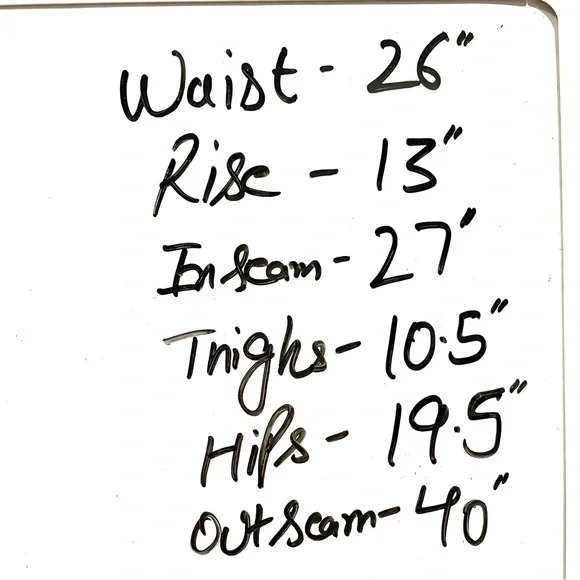 Waist - 26"
Rise - 13"
Inseam - 27"
Thighs - 10.5"
Hips - 19.5"
Outseam - 40"